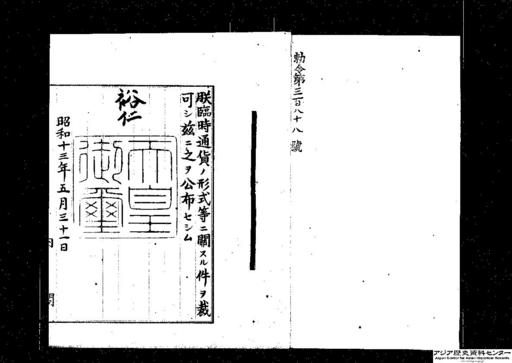 勅令第三百八十八號
朕臨時通貨ノ形式等ニ關スル件ヲ裁
可シ茲ニ之ヲ公布セシム
裕仁
天皇
御璽
昭和十三年五月三十一日
内閣
アジア歴史資料センター
Japan Center for Asian Historical Records